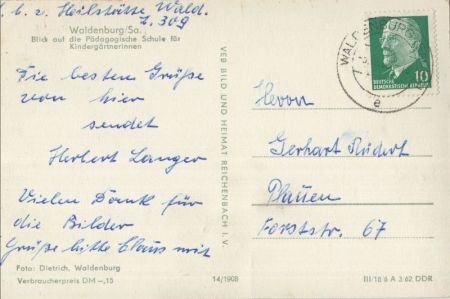 z. b. v. Heilstätte Wald.
Z. 309
Waldenburg/Sa.
Blick auf die Pädagogische Schule für
Kindergärtnerinnen
Die besten Grüße
von hier
sendet
Herbert Langer
Vielen Dank für
die Bilder
Grüße bitte Claus mit
Foto: Dietrich, Waldenburg
Verbraucherpreis DM -,15
VEB BILD UND HEIMAT REICHENBACH I. V.
14/1908
WALDENBURG
e
10
DEUTSCHE
DEMOKRATISCHE REPUBLIK
Herrn
Gerhart
Plauen
Forststr. 67
III/18/6 A 3/62 DDR